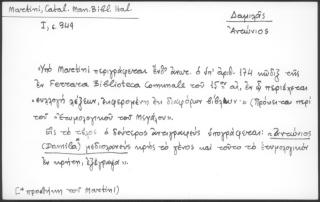 Martini, Catal. Man. Bibl. Ital
I, c. 349
Δαμιλᾶς
Ἀντώνιος
Ὑπὸ Martini περιγράφεται ἐνθ' ἀνωτ. ὁ ὑπ' ἀριθ. 174 κῶδιξ τῆς
ἐν Ferrara Biblioteca Comunale τοῦ 15ου αἰ, ἐν ᾧ περιέχεται
συλλογὴ λέξεων, διαφερομένη ἐκ διαφόρων βίβλων" (Πρόκειται περὶ
τοῦ "Ἐτυμολογικοῦ τοῦ Μεγάλου").
Εἰς τὸ τέλος ὁ δεύτερος ἀντιγραφεὺς ὑπογράφεται: "Ἀντώνιος
(Damila*) μεδιολανεὺς κρὴς τὸ γένος καὶ τοῦτο τὸ ἐτυμολογικὸν
ἐν κρήτῃ, ἐξέγραψα".
[* προσθήκη τοῦ Martini)